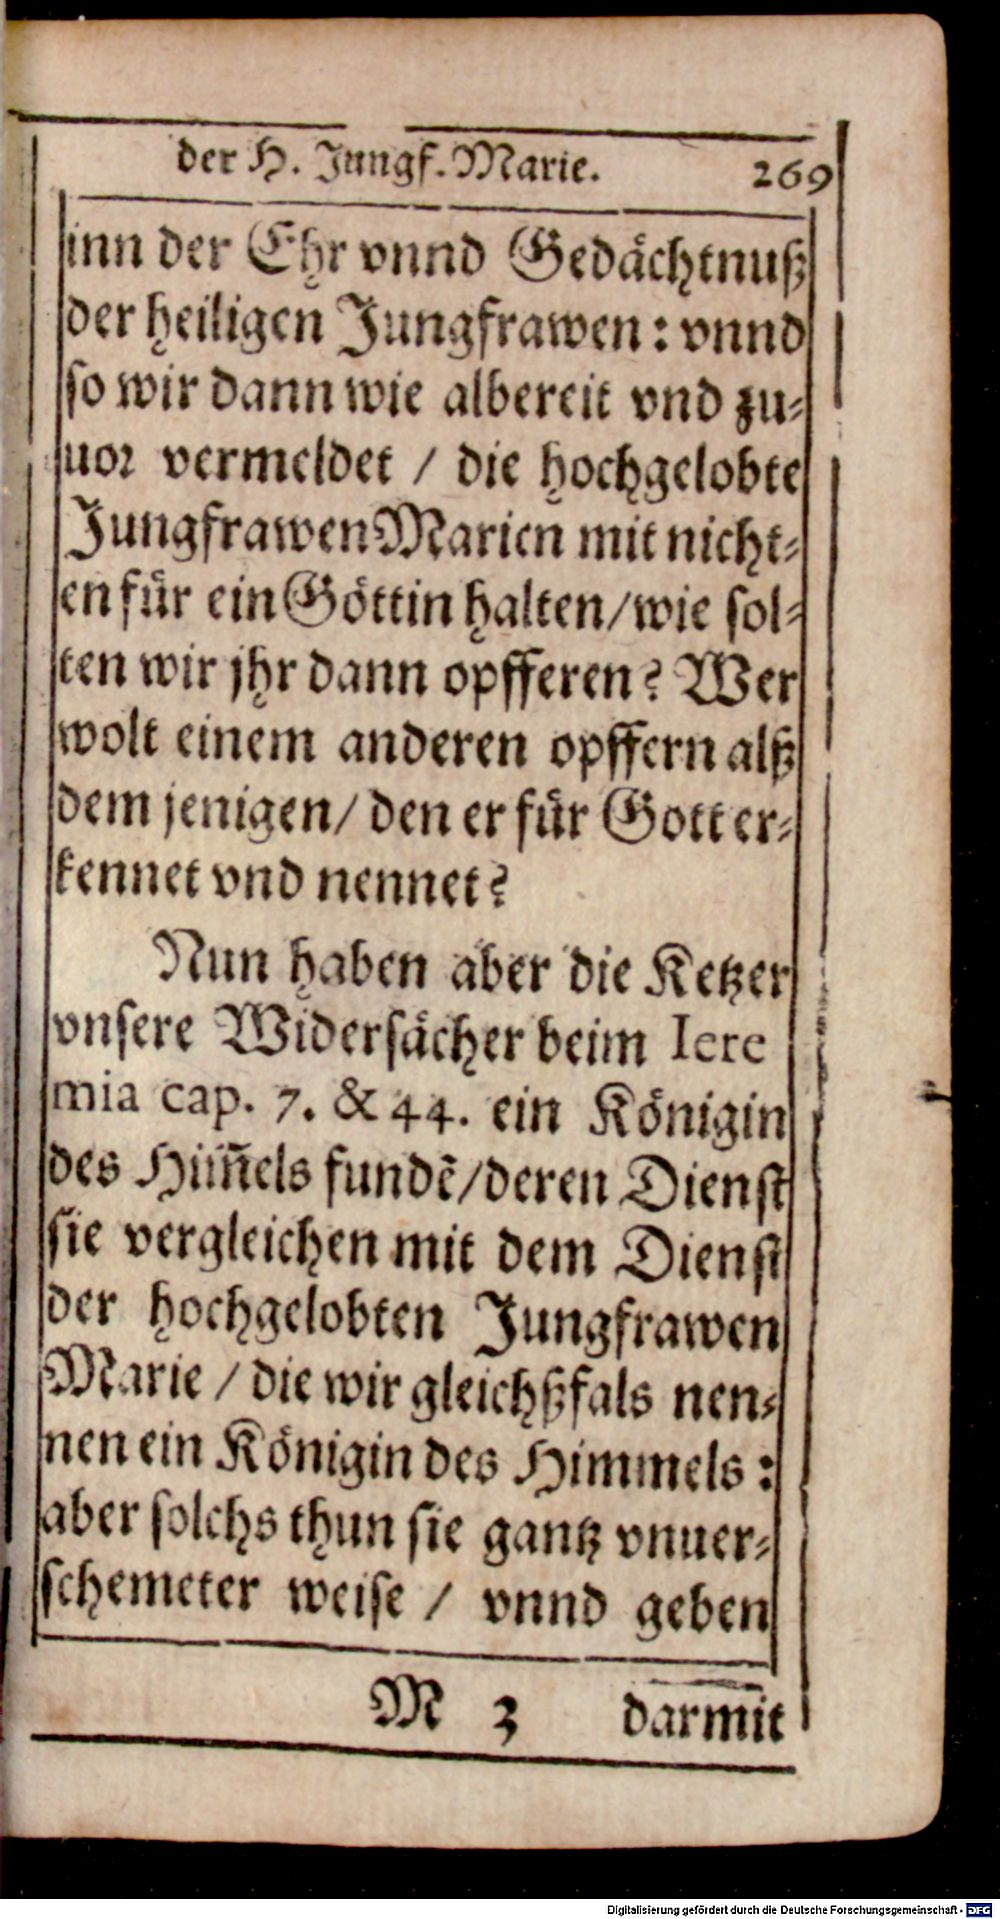 der H. Jungf. Marie. 269
inn der Ehr vnnd Gedächtnuß
der heiligen Jungfrawen: vnnd
so wir dann wie albereit vnd zu-
uor vermeldet / die hochgelobte
Jungfrawen Marien mit nicht-
en für ein Göttin halten/wie sol-
ten wir jhr dann opfferen? Wer
wolt einem anderen opffern alß
dem jenigen/ den er für Gott er-
kennet vnd nennet?
Nun haben aber die Ketzer
vnsere Widersächer beim Iere
mia cap. 7. & 44. ein Königin
des Him̃els fundẽ/deren Dienst
sie vergleichen mit dem Dienst
der hochgelobten Jungfrawen
Marie / die wir gleichßfals nen-
nen ein Königin des Himmels:
aber solchs thun sie gantz vnuer-
schemeter weise / vnnd geben
M 3 darmit
Digitalisierung gefördert durch die Deutsche Forschungsgemeinschaft - DFG